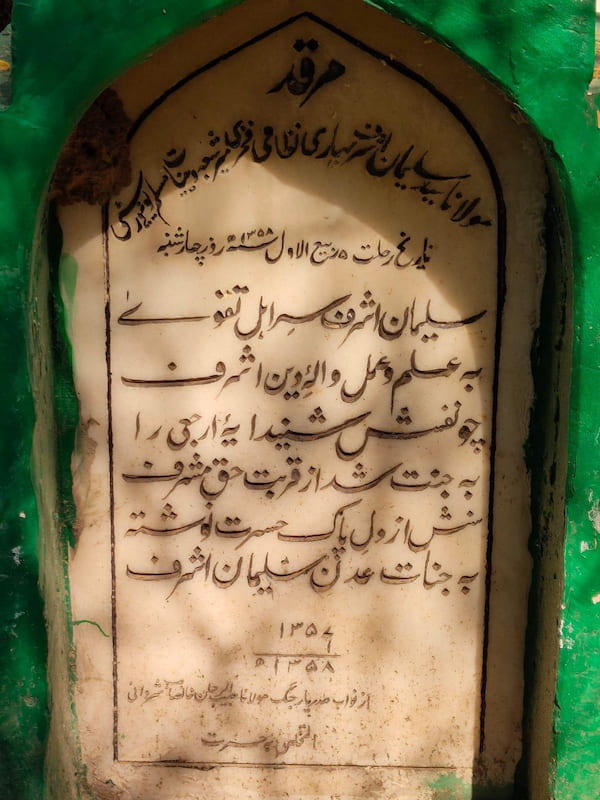 مرقد
مولانا سید سلیمان اشرف بہاری نظامی فخری میر شعبہ دینیات مسلم یونیورسٹی
تاریخ رحلت ۵ ربیع الاول ۱۳۵۸ھ روز چهارشنبہ
سلیمان اشرف سرِ اہل تقویٰ
بہ علم و عمل والۂ دین اشرف
چو نفسش شنید ایۂ ارجعی را
بہ جنت شد از قربت حق مشرف
سنش از دل پاک حسرت نوشتہ
بہ جنات عدن سلیمان اشرف
۱۳۵۷
۱
۱۳۵۸ھ
از نواب صدر یار جنگ مولانا حبیب الرحمان خانصاحب شروانی
المتخلص بہ حسرت